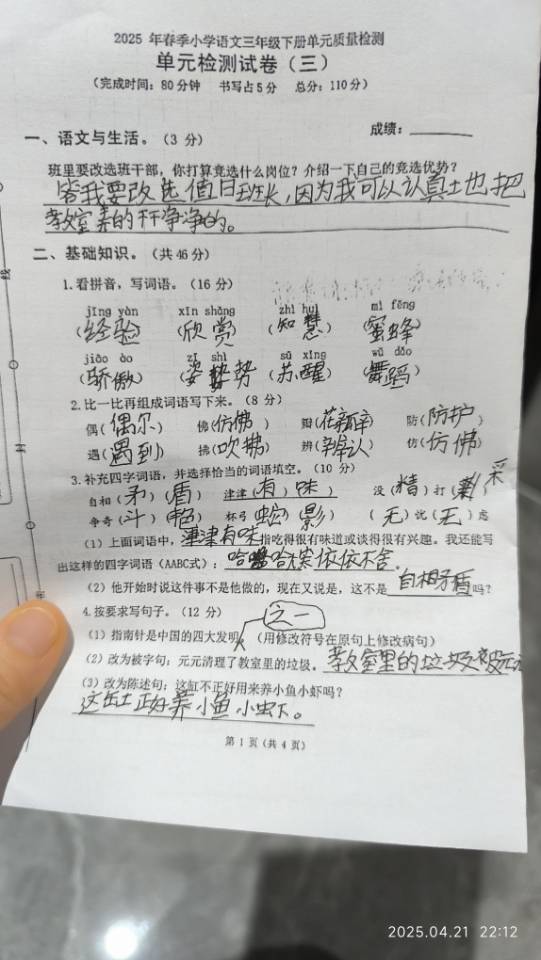 2025 年春季小学语文三年级下册单元质量检测
单元检测试卷（三）
（完成时间：80分钟 书写占5分 总分：110分）
成绩：
一、语文与生活。（3 分）
班里要改选班干部，你打算竞选什么岗位？介绍一下自己的竞选优势？
答我要改选值日班长，因为我可以认真土也把
教室弄的干净净的。
二、基础知识。（共46分）
1.看拼音，写词语。（16 分）
jīng yàn xīn shǎng zhì huì mì fēng
（经验） （欣赏） （知慧） （蜜蜂）
jiāo ào zī shì sū xǐng wǔ dǎo
（骄傲） （姿势） （苏醒） （舞蹈）
2.比一比再组成词语写下来。（8 分）
偶（偶尔） 佛（仿佛） 瓣（花瓣） 防（防护）
遇（遇到） 拂（吹拂） 辨（辨认） 仿（仿佛）
3.补充四字词语，并选择恰当的词语填空。（10 分）
自相（矛）（盾） 津津（有）（味） 没（精）打（采）
争奇（斗）（艳） 杯弓（蛇）（影） （无）忧（无）虑
（1）上面词语中，津津有味指吃得很有味道或谈得很有兴趣。我还能写
出这样的四字词语（AABC式）：哈哈大笑 依依不舍.
（2）他开始时说这件事不是他做的，现在又说是，这不是 自相矛盾吗？
4.按要求写句子。（12 分）
之一
（1）指南针是中国的四大发明。（用修改符号在原句上修改病句）
（2）改为被字句：元元清理了教室里的垃圾。教室里的垃圾被元
（3）改为陈述句：这缸不正好用来养小鱼小虾吗？
这缸正好养小鱼小虾。
第 1 页（共 4 页）
2025.04.21 22:12